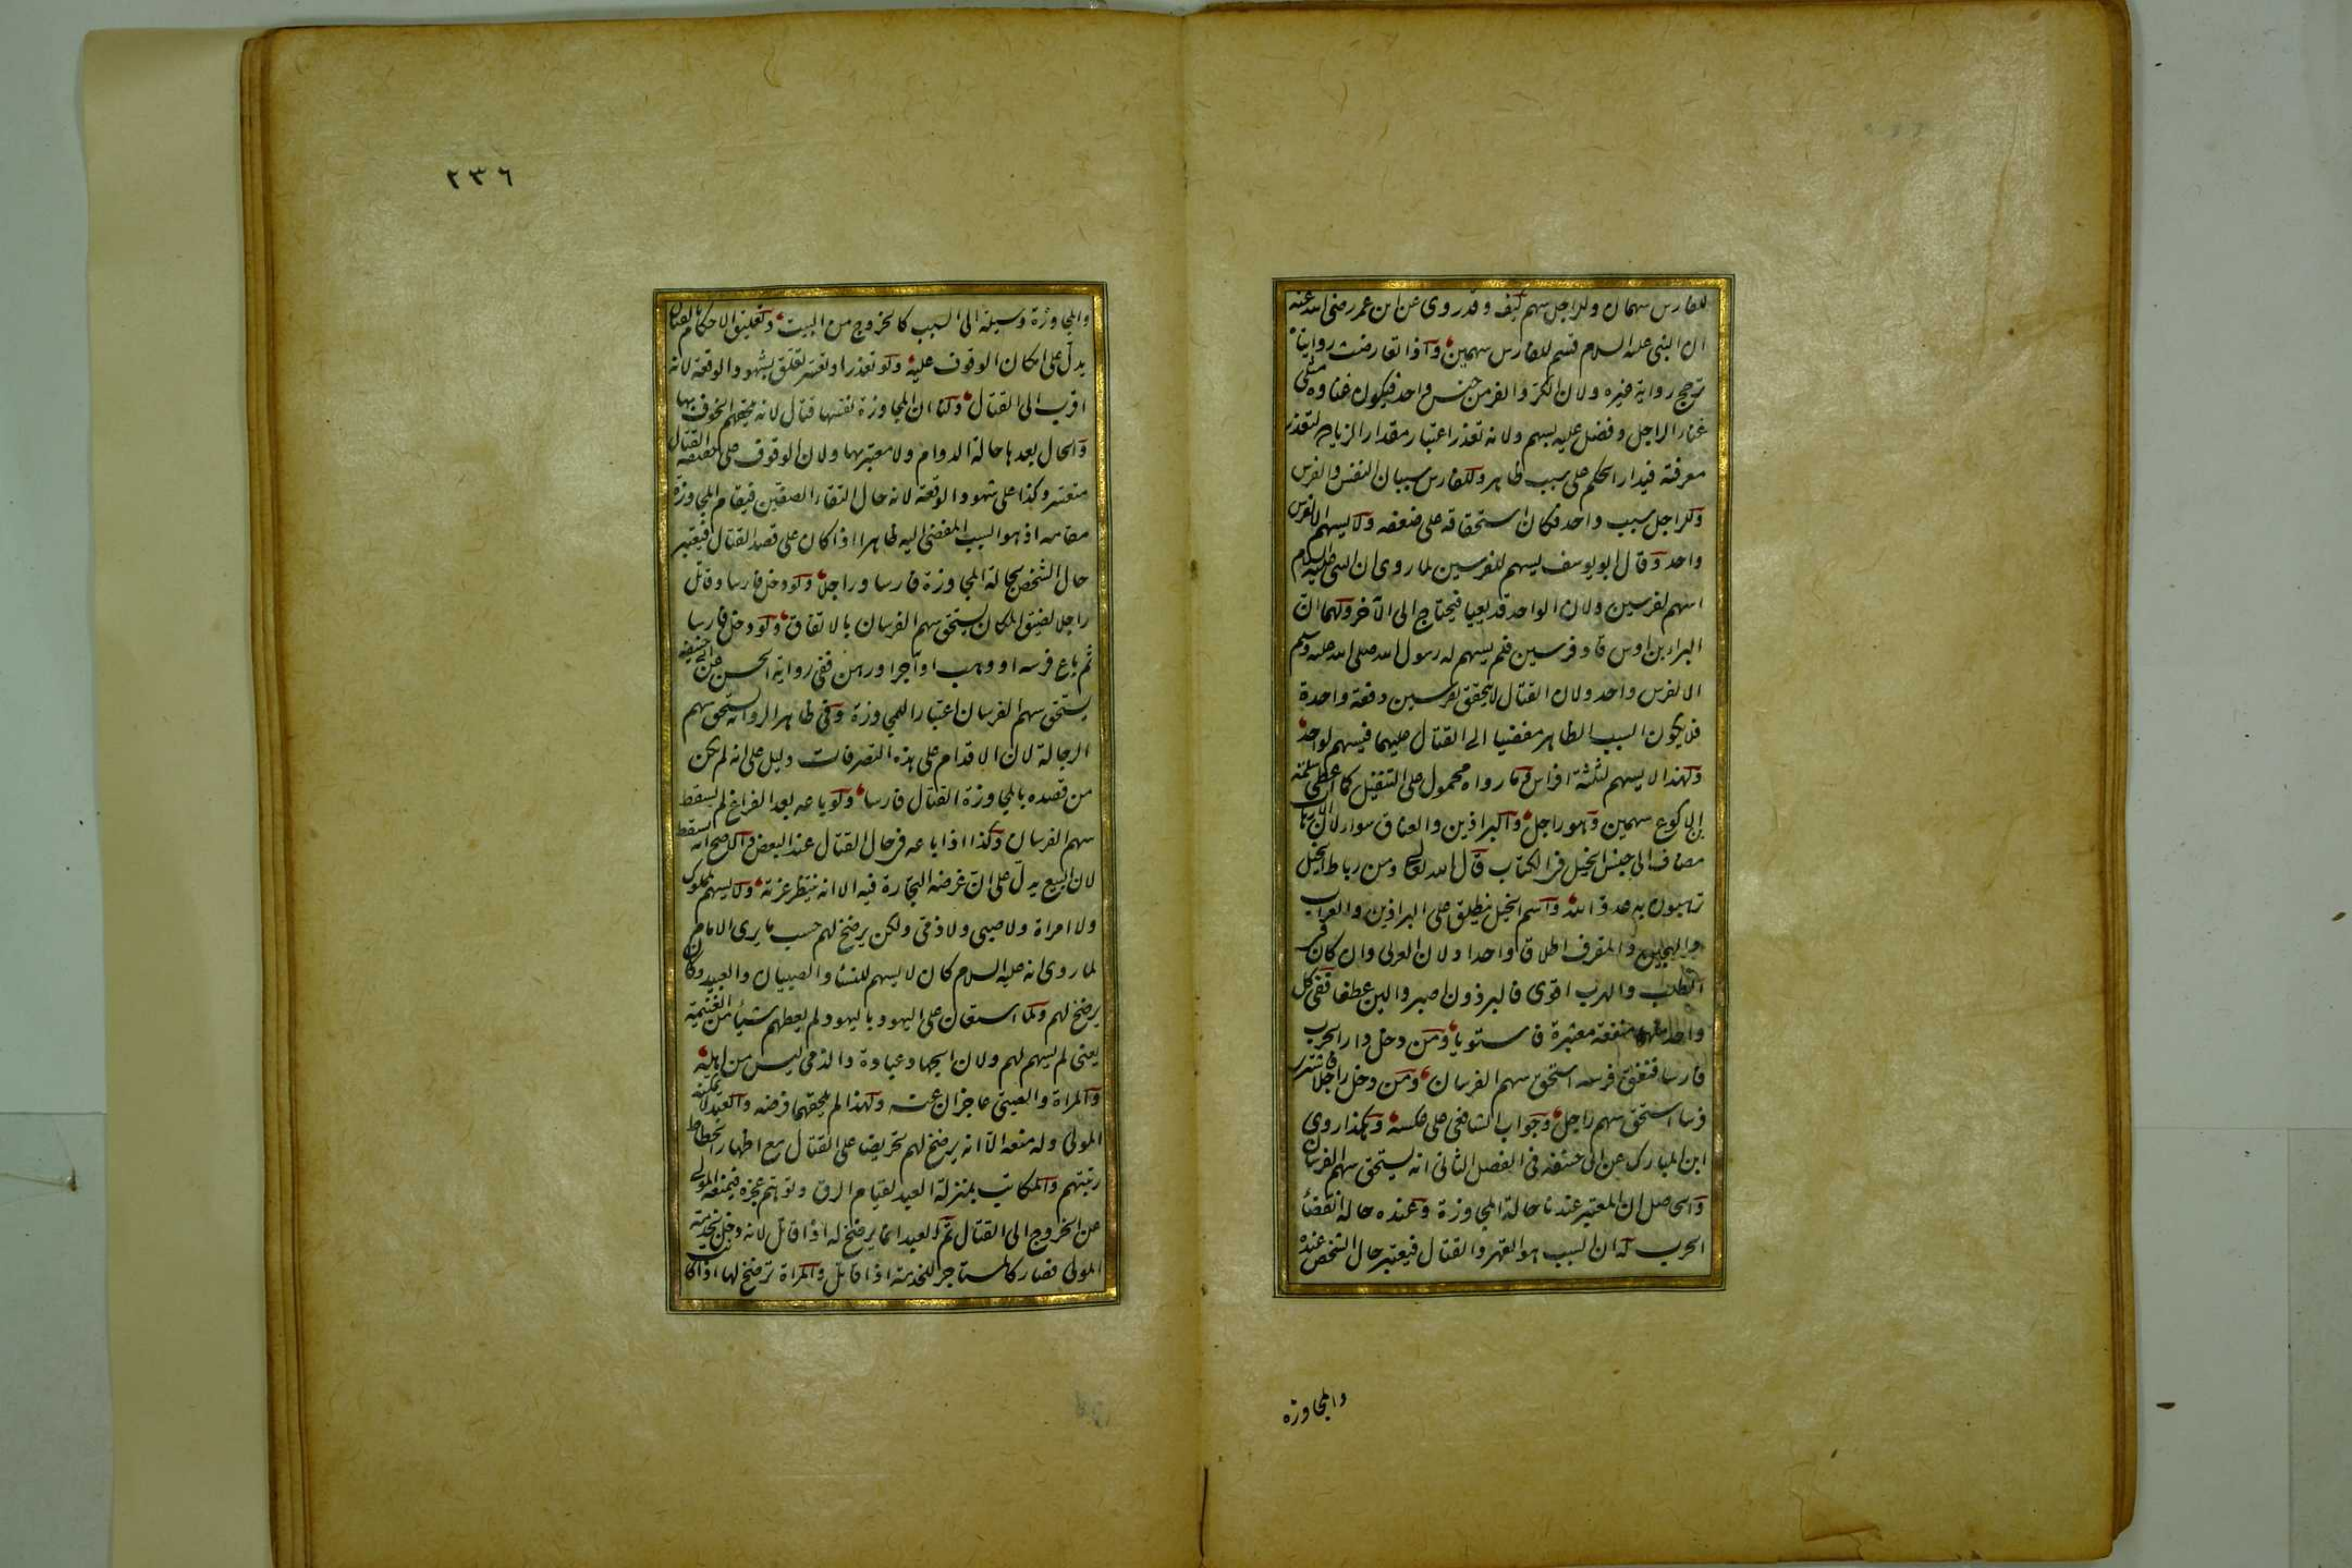 للفارس سهمان وللراجل سهم كيف وقد روى عن ابن عمر رضى الله عنه
ان النبى عليه السلام قسم للفارس سهمين واذا تعارضت روايتاه
ترجح رواية غيره ولان الكر والفر من جنس واحد فيكون غناؤه مثلى
غناء الراجل وفضل عليه بسهم ولانه تعذر اعتبار مقدار الزيادة لتعذر
معرفته فيدار الحكم على سبب ظاهر وللفارس سببان النفس والفرس
وللراجل سبب واحد فكان استحقاقه على ضعفه ولا يسهم الا لفرس
واحد وقال ابو يوسف يسهم للفرسين لما روى ان النبى عليه السلام
اسهم لفرسين ولان الواحد قد يعيا فيحتاج الى الآخر ولهما ان
البراء بن اوس قاد فرسين فلم يسهم له رسول الله صلى الله عليه وسلم
الا لفرس واحد ولان القتال لا يتحقق بفرسين دفعة واحدة
فلا يكون السبب الظاهر مفضيا الى القتال عليهما فيسهم لواحد
ولهذا لا يسهم لثلثة افراس وما رواه محمول على التنفيل كما اعطى سلمة
بن الاكوع سهمين وهو راجل والبراذين والعتاق سواء لان الارهاب
مضاف الى جنس الخيل فى الكتاب قال الله تعالى ومن رباط الخيل
ترهبون به عدو الله واسم الخيل ينطلق على البراذين والعراب
والهجين والمقرف اطلاقا واحدا ولان العربى وان كان فى
الطلب والهرب اقوى فالبرذون اصبر والين عطفا ففى كل
واحد منهما منفعة معتبرة فاستويا ومن دخل دار الحرب
فارسا فنفق فرسه استحق سهم الفرسان ومن دخل راجلا فاشترى
فرسا استحق سهم راجل وجواب الشافعى على عكسه وهكذا روى
ابن المبارك عن ابى حنيفه فى الفصل الثانى انه يستحق سهم الفرسان
والحاصل ان المعتبر عندنا حالة المجاوزة وعنده حالة انقضاء
الحرب له ان السبب هو القهر والقتال فيعتبر حال الشخص عنده
والمجاوزة
٢٣٦
والمجاوزة وسيلة الى السبب كالخروج من البيت وتعليق الاحكام بالقتال
يدل على امكان الوقوف عليه ولو تعذر او تعسر تعلق بشهود الوقعة لانه
اقرب الى القتال ولنا ان المجاوزة نفسها قتال لانه يلحقهم الخوف بها
والحال بعدها حالة الدوام ولا معتبر بها ولان الوقوف على حقيقة القتال
متعسر وكذا على شهود الوقعة لانه حال التقاء الصفين فيقام المجاوزة
مقامه اذ هو السبب المفضى اليه ظاهرا اذا كان على قصد القتال فيعتبر
حال الشخص بحالة المجاوزة فارسا وراجلا ولو دخل فارسا وقاتل
راجلا لضيق المكان يستحق سهم الفرسان بالاتفاق ولو دخل فارسا
ثم باع فرسه او وهب او آجر او رهن ففى رواية الحسن عن ابى حنيفه
يستحق سهم الفرسان اعتبارا للمجاوزة وفى ظاهر الرواية يستحق سهم
الرجالة لان الاقدام على هذه التصرفات دليل على انه لم يكن
من قصده بالمجاوزة القتال فارسا ولو باعه بعد الفراغ لم يسقط
سهم الفرسان وكذا اذا باعه فى حال القتال عند البعض والاصح انه يسقط
لان البيع يدل على ان غرضه التجارة فيه الا انه ينتظر عزته ولا يسهم لمملوك
ولا امراة ولا صبى ولا ذمى ولكن يرضخ لهم حسب ما يرى الامام
لما روى انه عليه السلام كان لا يسهم للنساء والصبيان والعبيد وكان
يرضخ لهم ولما استعان على اليهود باليهود لم يعطهم شيئا من الغنيمة
يعنى لم يسهم لهم ولان الجهاد عبادة والذمى ليس من اهله
والمراة والصبى عاجزان عنه ولهذا لم يلحقهما فرضه والعبد لا يمكنه
المولى وله منعه الا انه يرضخ لهم تحريضا على القتال مع اظهار انحطاط
رتبتهم والمكاتب بمنزلة العبد لقيام الرق وتوهم عجزه فيمنعه المولى
عن الخروج الى القتال ثم العبد انما يرضخ له اذا قاتل لانه دخل لخدمة
المولى فصار كالمستاجر للخدمة اذا قاتل والمراة ترضخ لها اذا كانت